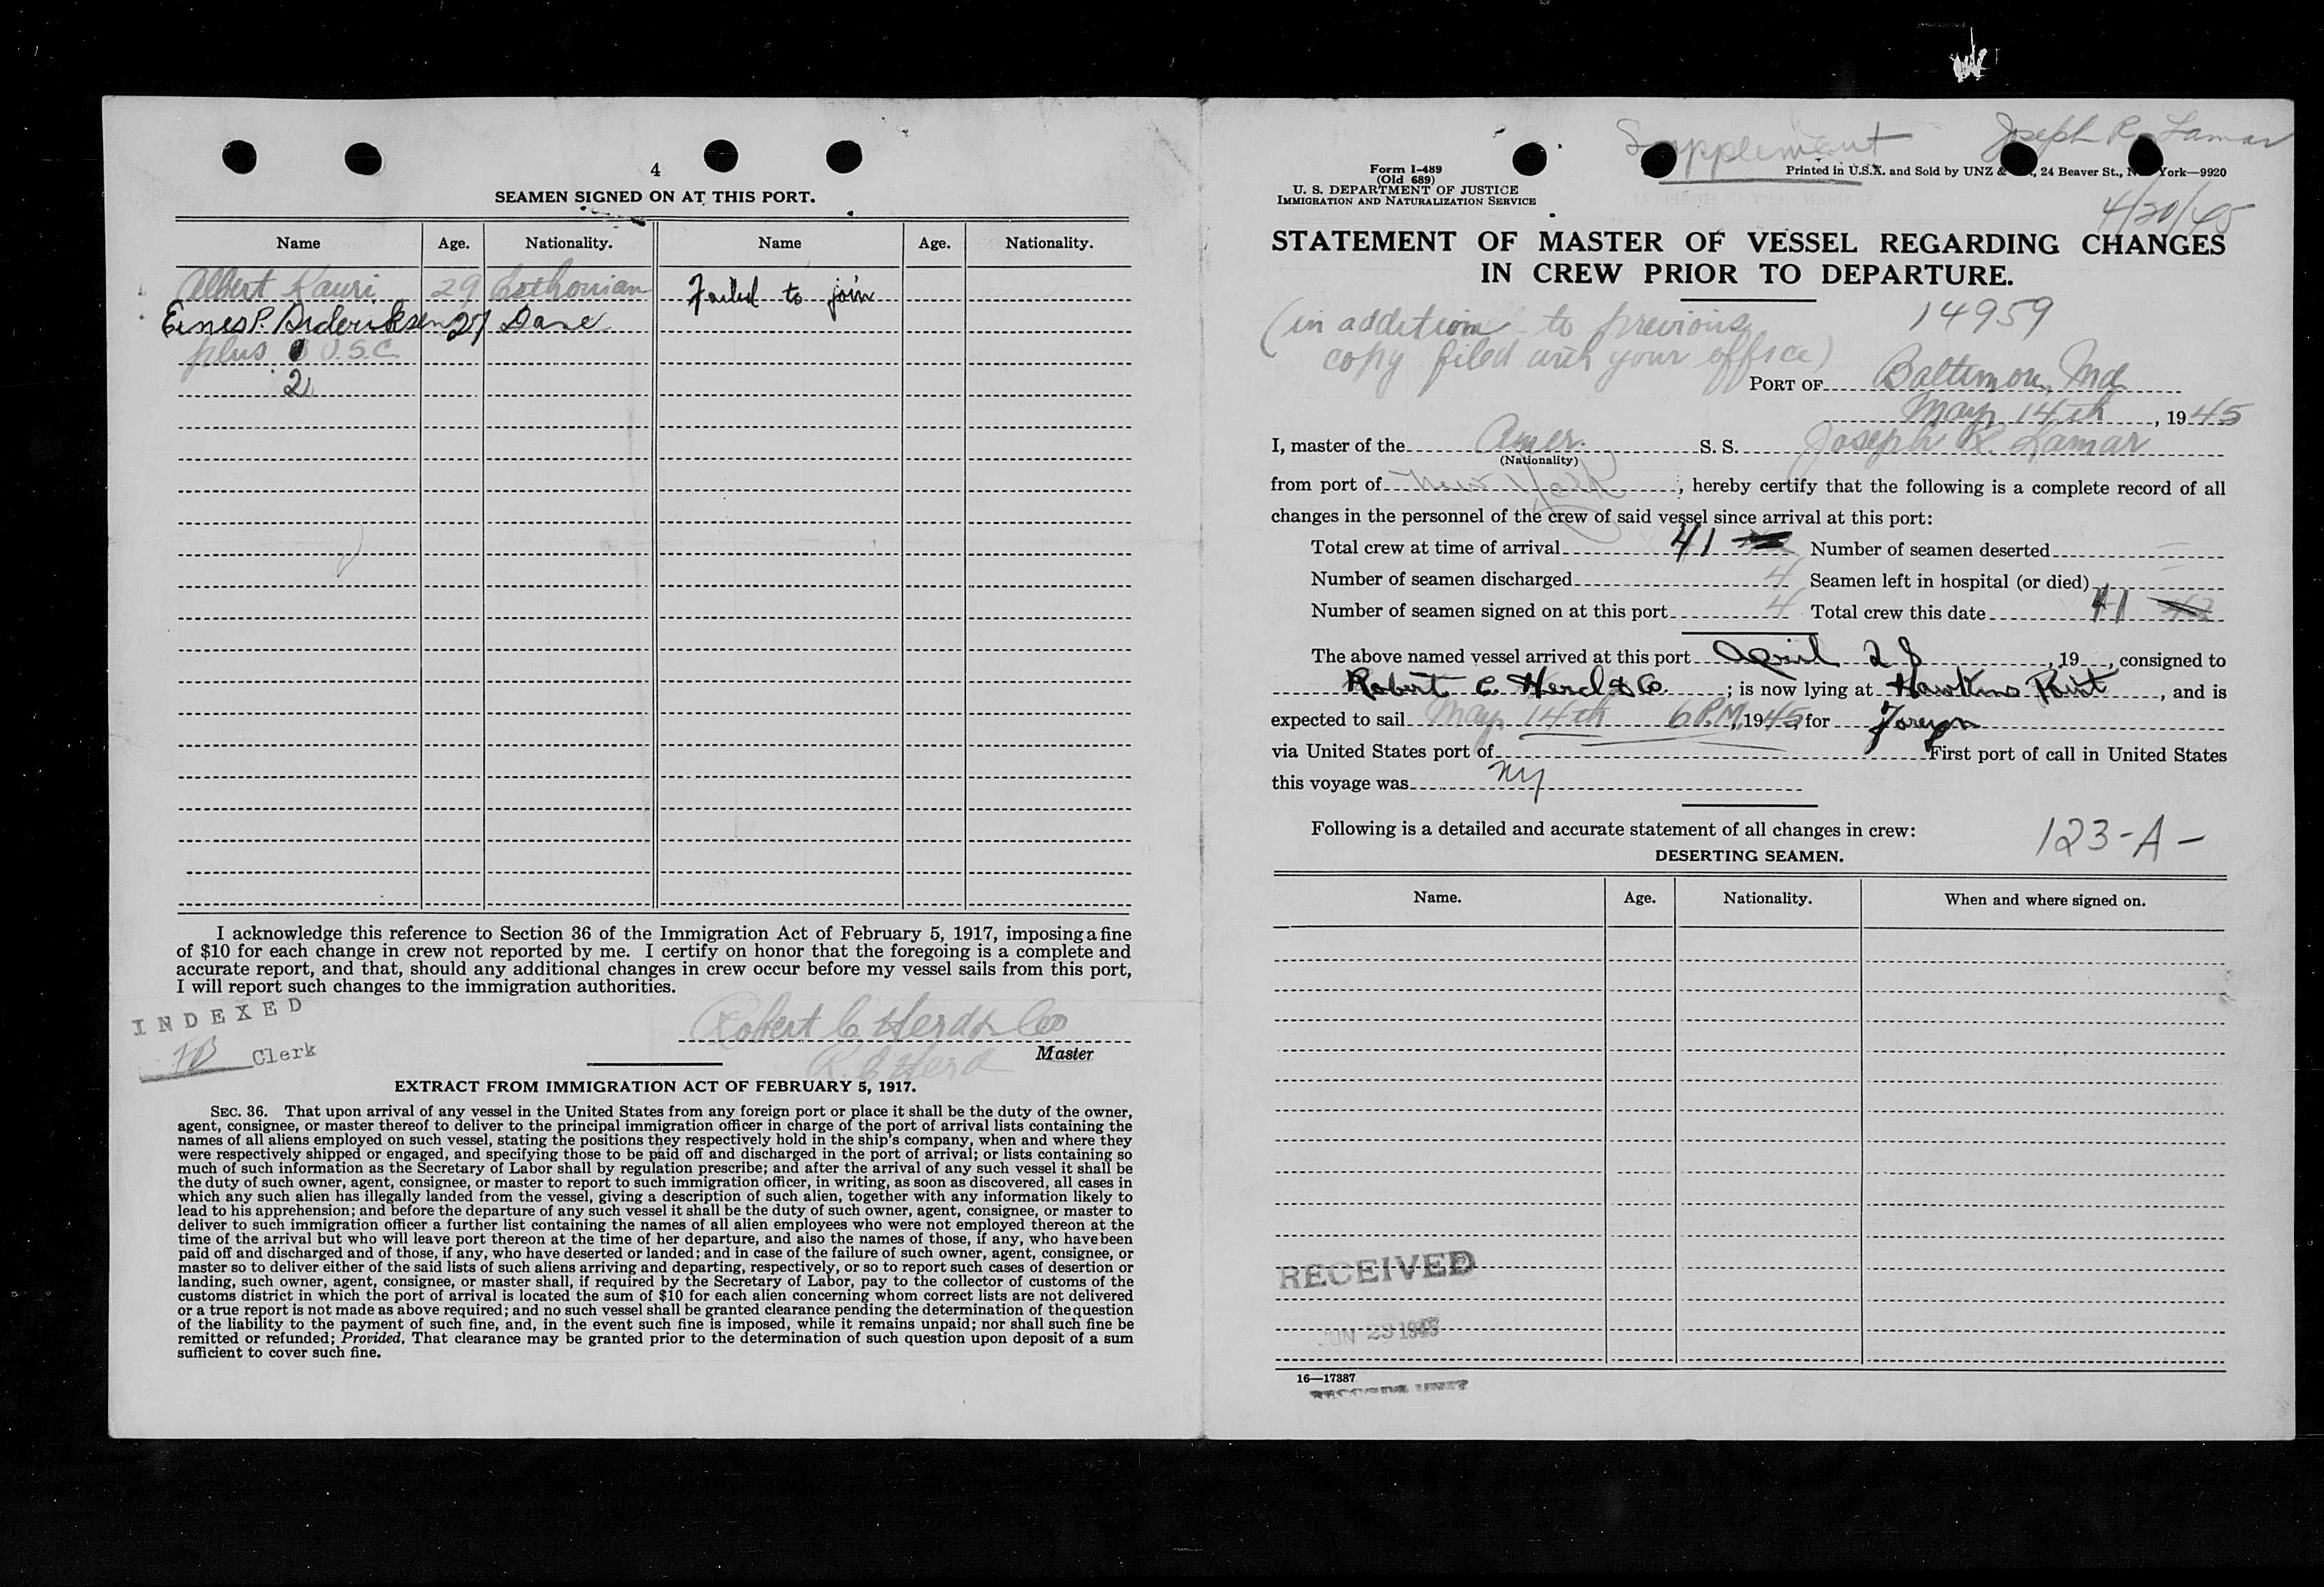 4
SEAMEN SIGNED ON AT THIS PORT.
Name Age. Nationality. Name Age. Nationality.
Albert Kauri 29 Esthonian Failed to join
P. Dideriksen 27 Dane
plus U.S.C.
2
I acknowledge this reference to Section 36 of the Immigration Act of February 5, 1917, imposing a fine
of $10 for each change in crew not reported by me. I certify on honor that the foregoing is a complete and
accurate report, and that, should any additional changes in crew occur before my vessel sails from this port,
I will report such changes to the immigration authorities.
INDEXED
Clerk
Robert C Herd & Co
R. C Herd Master
EXTRACT FROM IMMIGRATION ACT OF FEBRUARY 5, 1917.
SEC. 36. That upon arrival of any vessel in the United States from any foreign port or place it shall be the duty of the owner,
agent, consignee, or master thereof to deliver to the principal immigration officer in charge of the port of arrival lists containing the
names of all aliens employed on such vessel, stating the positions they respectively hold in the ship's company, when and where they
were respectively shipped or engaged, and specifying those to be paid off and discharged in the port of arrival; or lists containing so
much of such information as the Secretary of Labor shall by regulation prescribe; and after the arrival of any such vessel it shall be
the duty of such owner, agent, consignee, or master to report to such immigration officer, in writing, as soon as discovered, all cases in
which any such alien has illegally landed from the vessel, giving a description of such alien, together with any information likely to
lead to his apprehension; and before the departure of any such vessel it shall be the duty of such owner, agent, consignee, or master to
deliver to such immigration officer a further list containing the names of all alien employees who were not employed thereon at the
time of the arrival but who will leave port thereon at the time of her departure, and also the names of those, if any, who have been
paid off and discharged and of those, if any, who have deserted or landed; and in case of the failure of such owner, agent, consignee, or
master so to deliver either of the said lists of such aliens arriving and departing, respectively, or so to report such cases of desertion or
landing, such owner, agent, consignee, or master shall, if required by the Secretary of Labor, pay to the collector of customs of the
customs district in which the port of arrival is located the sum of $10 for each alien concerning whom correct lists are not delivered
or a true report is not made as above required; and no such vessel shall be granted clearance pending the determination of the question
of the liability to the payment of such fine, and, in the event such fine is imposed, while it remains unpaid; nor shall such fine be
remitted or refunded; Provided, That clearance may be granted prior to the determination of such question upon deposit of a sum
sufficient to cover such fine.
Supplement Joseph R. Lamar
Form I-489
(Old 689)
U. S. DEPARTMENT OF JUSTICE
IMMIGRATION AND NATURALIZATION SERVICE
Printed in U.S.A. and Sold by UNZ & 24 Beaver St., York—9920
4/20/45
STATEMENT OF MASTER OF VESSEL REGARDING CHANGES
IN CREW PRIOR TO DEPARTURE.
(in addition to previous 14959
copy filed with your office)
PORT OF Baltimore, Md.
May 14th, 1945
I, master of the Amer. S. S. Joseph R. Lamar
(Nationality)
from port of New York, hereby certify that the following is a complete record of all
changes in the personnel of the crew of said vessel since arrival at this port:
Total crew at time of arrival 41 Number of seamen deserted —
Number of seamen discharged 4 Seamen left in hospital (or died) —
Number of seamen signed on at this port 4 Total crew this date 41
The above named vessel arrived at this port April 28, 19 , consigned to
Robert C. Herd & Co.; is now lying at Hawkins Point, and is
expected to sail May 14th 6 P.M, 1945, for Foreign
via United States port of First port of call in United States
this voyage was NY
Following is a detailed and accurate statement of all changes in crew:
123-A-
DESERTING SEAMEN.
Name. Age. Nationality. When and where signed on.
RECEIVED
JUN 23 1945
16—17387